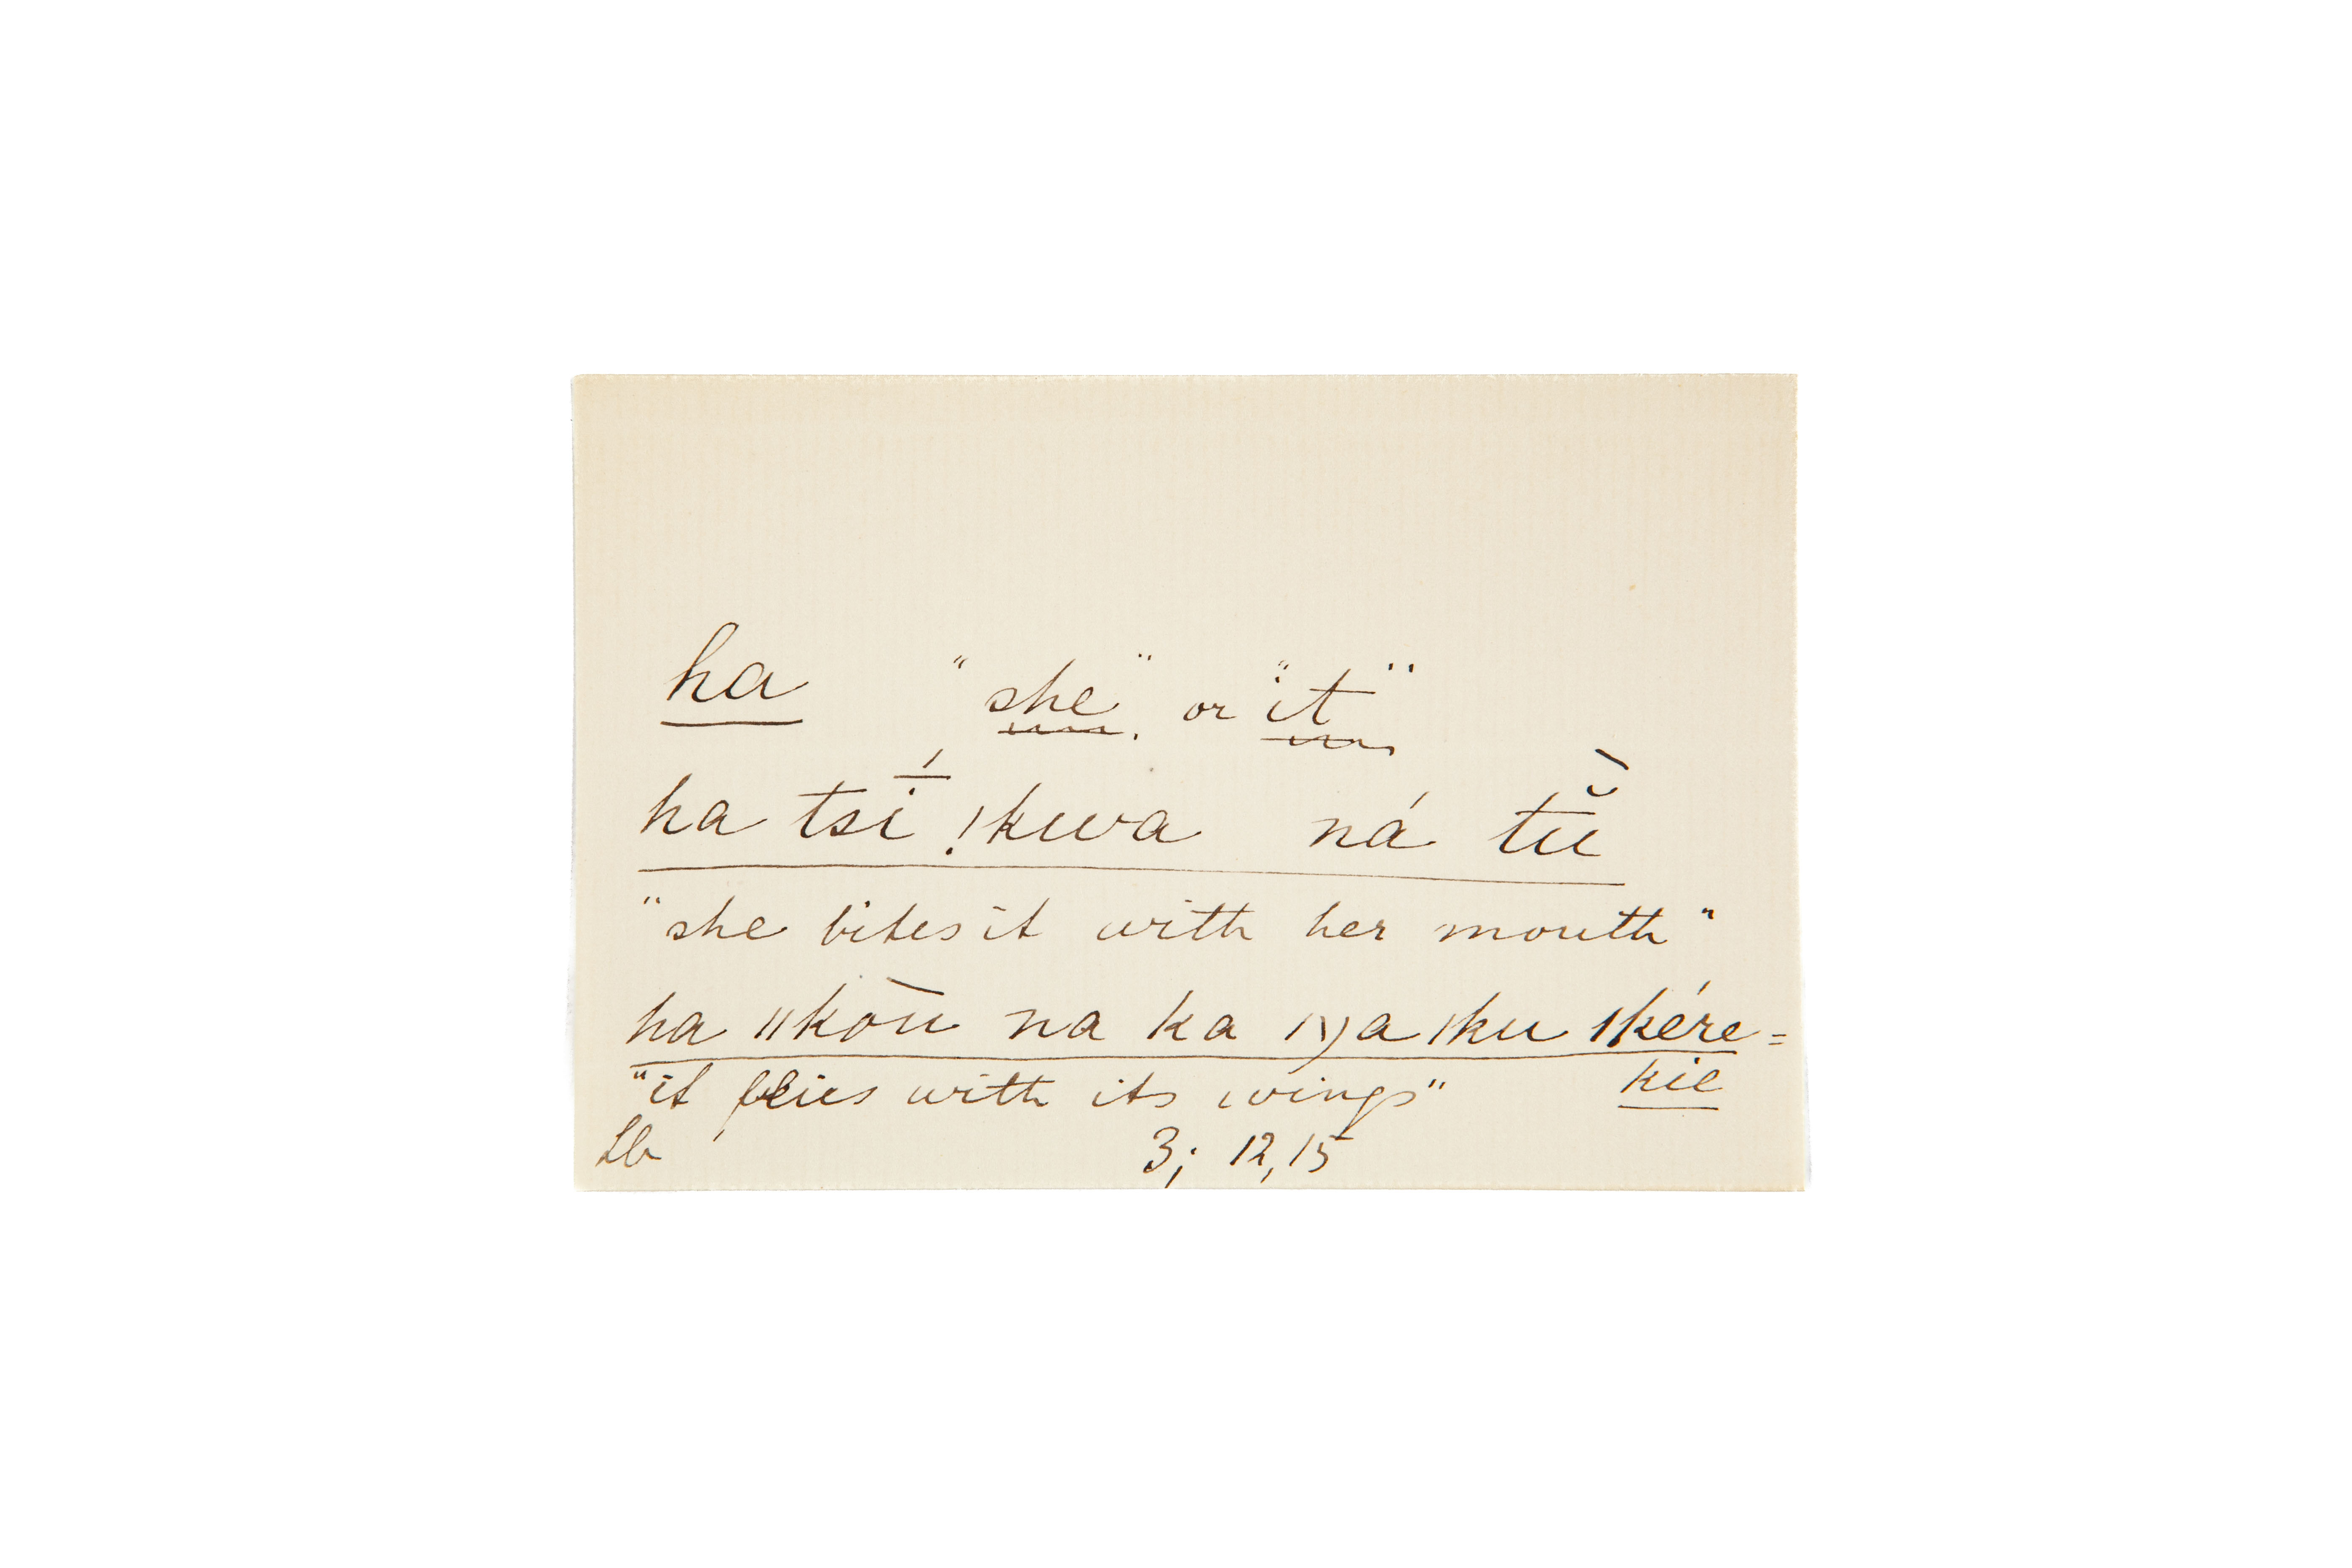 ha "she" or "it"
ha tsí̄ !kwa ná tŭ̀
"she bites it with her mouth"
ha ǁkōu na ka ŋa ǀku ǀkére=
"it flies with its wings" kie
Lb 3; 12,15